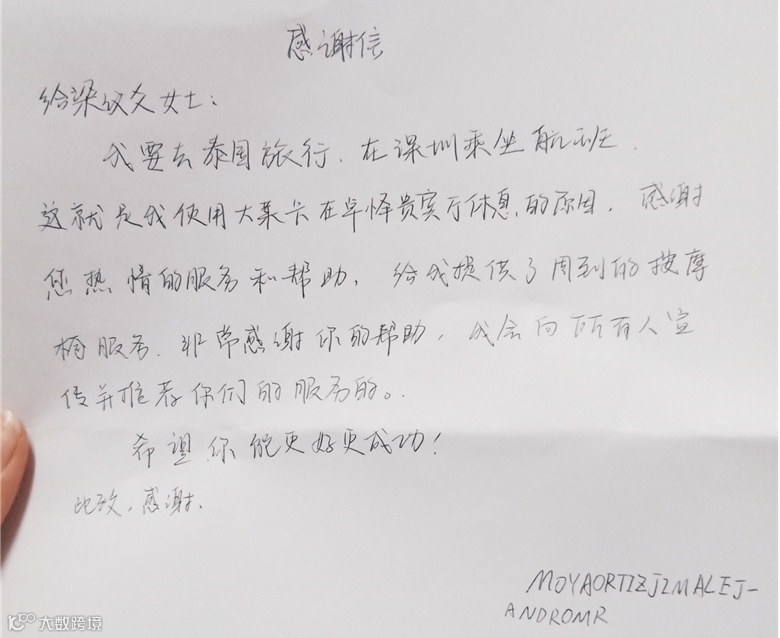 感谢信
给梁纹爻女士：
我要去泰国旅行.在深圳乘坐航班.
这就是我使用大莱卡在卓怿贵宾厅休息的原因.感谢
您热情的服务和帮助,给我提供了周到的按摩
椅服务.非常感谢你的帮助,我会向所有人宣
传并推荐你们的服务的。.
希望你能更好更成功!
此致,感谢.
MOYAORTIZJIMALEJ-
ANDROMR
大数跨境